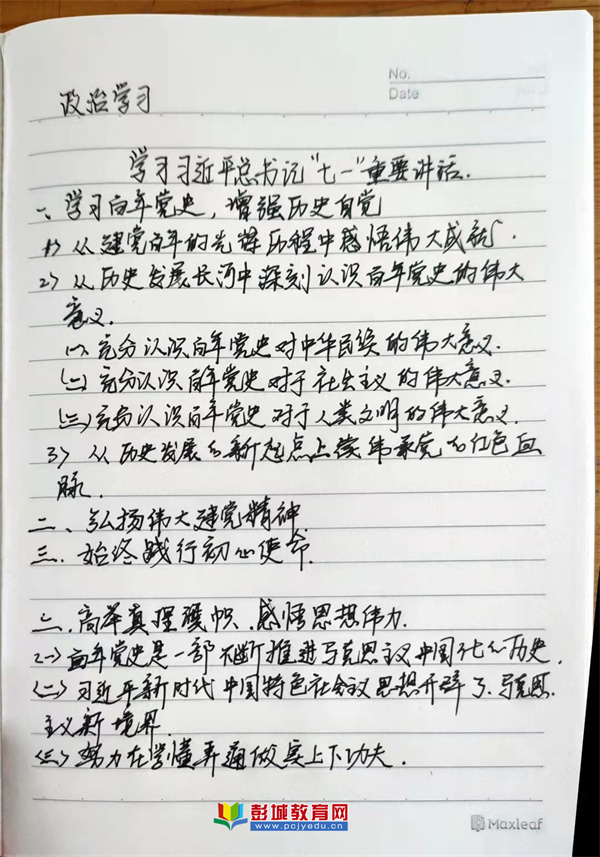 No.
Date
政治学习
学习习近平总书记"七一"重要讲话.
一、学习百年党史，增强历史自觉
1> 从建党百年的光辉历程中感悟伟大成就.
2> 从历史发展长河中深刻认识百年党史的伟大
意义.
(一) 充分认识百年党史对中华民族的伟大意义.
(二) 充分认识百年党史对于社会主义的伟大意义.
(三) 充分认识百年党史对于人类文明的伟大意义.
3> 从历史发展的新起点上赓续传承党的红色血
脉.
二、弘扬伟大建党精神.
三、始终践行初心使命.
二.高举真理旗帜.感悟思想伟力.
(一) 百年党史是一部不断推进马克思主义中国化的历史.
(二) 习近平新时代中国特色社会主义思想开辟了马克思
主义新境界.
(三) 努力在学懂弄通做实上下功夫.
彭城教育网
www.pcjyedu.cn
Maxleaf